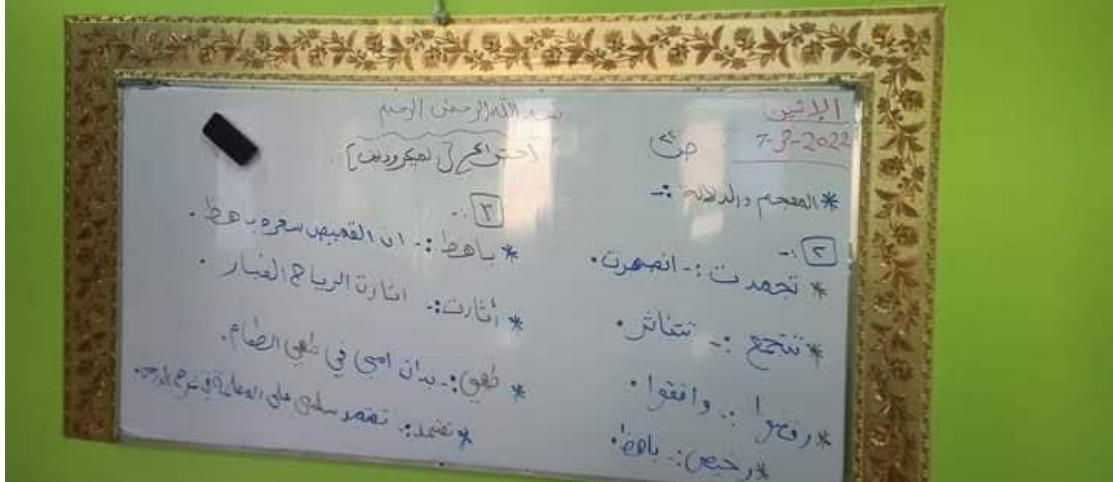 بسم الله الرحمن الرحيم
الإثنين
7-3-2022
ص
اختراع [الميكروويف]
* المعجم والدلالة :-
٢ :-
* تجمدت :- انصهرت.
* تتجمع :- تتناثر.
* رفضوا :- وافقوا.
* رخيص :- باهظ.
٣ :-
* باهظ :- ان القميص سعره باهظ.
* أثارت :- اثارة الرياح الغبار.
* طهي :- بدات امي في طهي الطعام.
* تعتمد :- تعتمد سلمى على المعلمة في شرح الدرس.